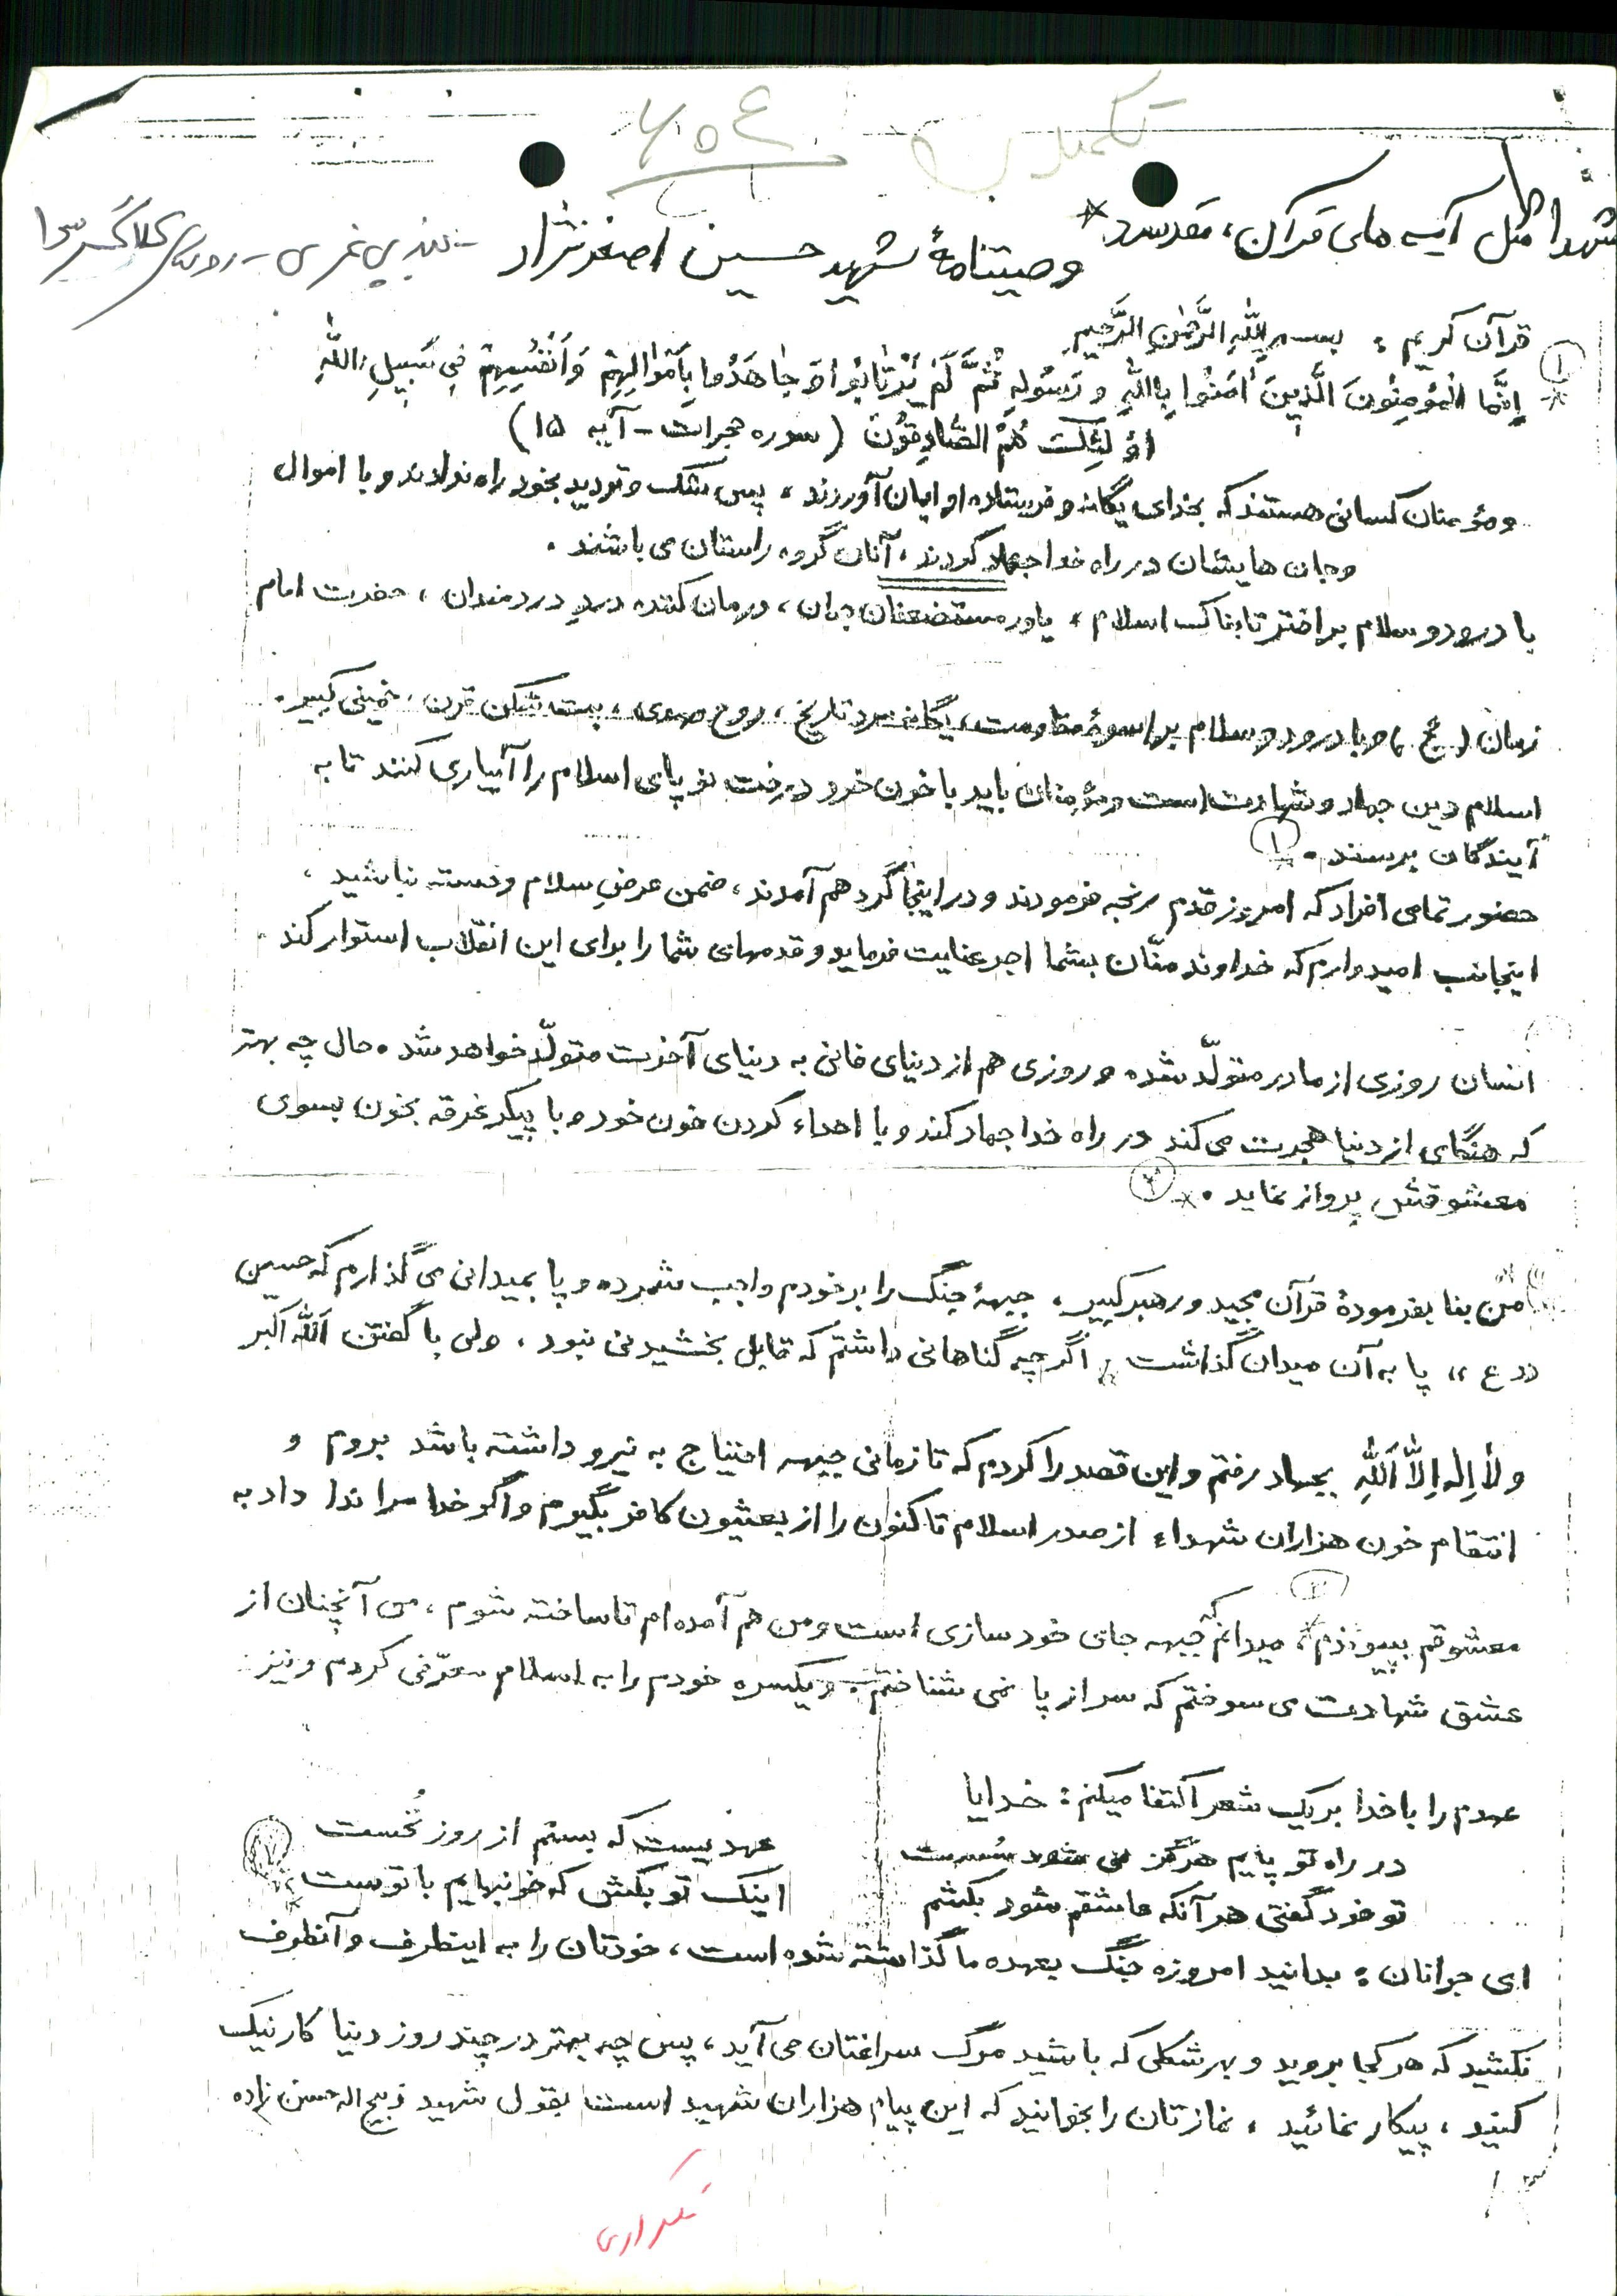 تکمیلی
۶۵۴
شهدا مثل آیه های قرآن، مقدسند
وصیتنامهٔ شهید حسین اصغرنژاد
قرآن کریم : بسم اللهِ الرَّحمٰنِ الرَّحیمِ
۱
اِنَّمَا الْمُؤمِنُونَ الَّذِینَ اٰمَنُوا بِاللهِ وَ رَسُولِهِ ثُمَّ لَمْ یَرْتٰابُوا وَ جٰاهَدُوا بِاَمْوٰالِهِمْ وَ اَنْفُسِهِمْ فِی سَبِیلِ اللهِ
اُولٰئِکَ هُمُ الصّٰادِقُونَ (سوره حجرات - آیه ۱۵)
و مؤمنان کسانی هستند که بخدای یگانه و فریستاده او ایمان آورزند ، پس شک و تردید بخود راه ندادند و با اموال
و جان هایشان در راه خدا جهاد کردند ، آنان گروه راستان می باشند .
با درود و سلام بر اختر تابناک اسلام ، یاور مستضعفان جهان ، درمان کننده درد دردمندان ، حضرت امام
زمان (عج) و با درود و سلام بر اسوهٔ مقاومت ، یگانه مرد تاریخ ، روح مهدی ، بت شکن قرن ، خمینی کبیر .
اسلام دین جهاد و شهادت است و مؤمنان باید با خون خود درخت نو پای اسلام را آبیاری کنند تا به
آیندگان برسند . ۱
حضور تمامی افراد که امروز قدم رنجه فرمودند و در اینجا گرد هم آمدند ، ضمن عرض سلام و خسته نباشید ،
اینجانب امیدوارم که خداوند منّان بشما اجر عنایت فرماید و قدمهای شما را برای این انقلاب استوار کند
انسان روزی از مادر متولّد شده و روزی هم از دنیای فانی به دنیای آخرت متولّد خواهد شد . حال چه بهتر
که هنگامی از دنیا هجرت می کند در راه خدا جهاد کند و با اهداء کردن خون خود و با پیکر غرقه بخون بسوی
معشوقش پرواز نماید . ۲
من بنا بفرمودهٔ قرآن مجید و رهبر کبیر ، جبههٔ جنگ را بر خودم واجب شمرده و پا بمیدانی می گذارم که حسین
«ع» پا به آن میدان گذاشت ، اگر چه گناهانی داشتم که قابل بخشیدنی نبود ، ولی با گفتن اَللّٰه اکبر
و لٰا اِله اِلاّ اَللهِ بجهاد رفتم و این قصد را کردم که تا زمانی جبهه احتیاج به نیرو داشته باشد بروم و
انتقام خون هزاران شهداء از صدر اسلام تا کنون را از بعثیون کافر بگیرم و اگر خدا مرا ندا داد به
معشوقم بپیوندم ، میدانم که جبهه جای خود سازی است و من هم آمده ام تا ساخته شوم ، من آنچنان از
عشق شهادت می سوختم که سر از پا نمی شناختم . و یکسره خودم را به اسلام معرّفی کردم و نیز
عهدم را با خدا بر یک شعر اکتفا میکنم : خدایا
در راه تو پایم هرگز نمی شود سُست عهدیست که بستم از روز نُخست
تو خود گفتی هر آنکه عاشقم شود بکشم اینک تو بکش که خونبهایم با توست
ای جوانان : بدانید امروزه جنگ بعهده ما گذاشته شده است ، خودتان را به اینطرف و آنطرف
نکشید که هر کجا بروید و بهر شکلی که باشید مرگ سراغتان می آید ، پس چه بهتر در چند روز دنیا کار نیک
کنید ، پیکار نمائید ، نمازتان را بخوانید که این پیام هزاران شهید است بقول شهید ذبیح اله حسن زاده
تکراری